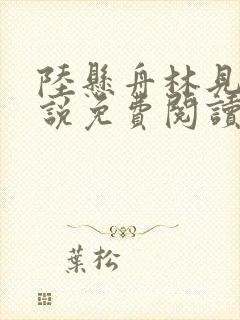 陸懸舟林見
說免費閱讀
葉松